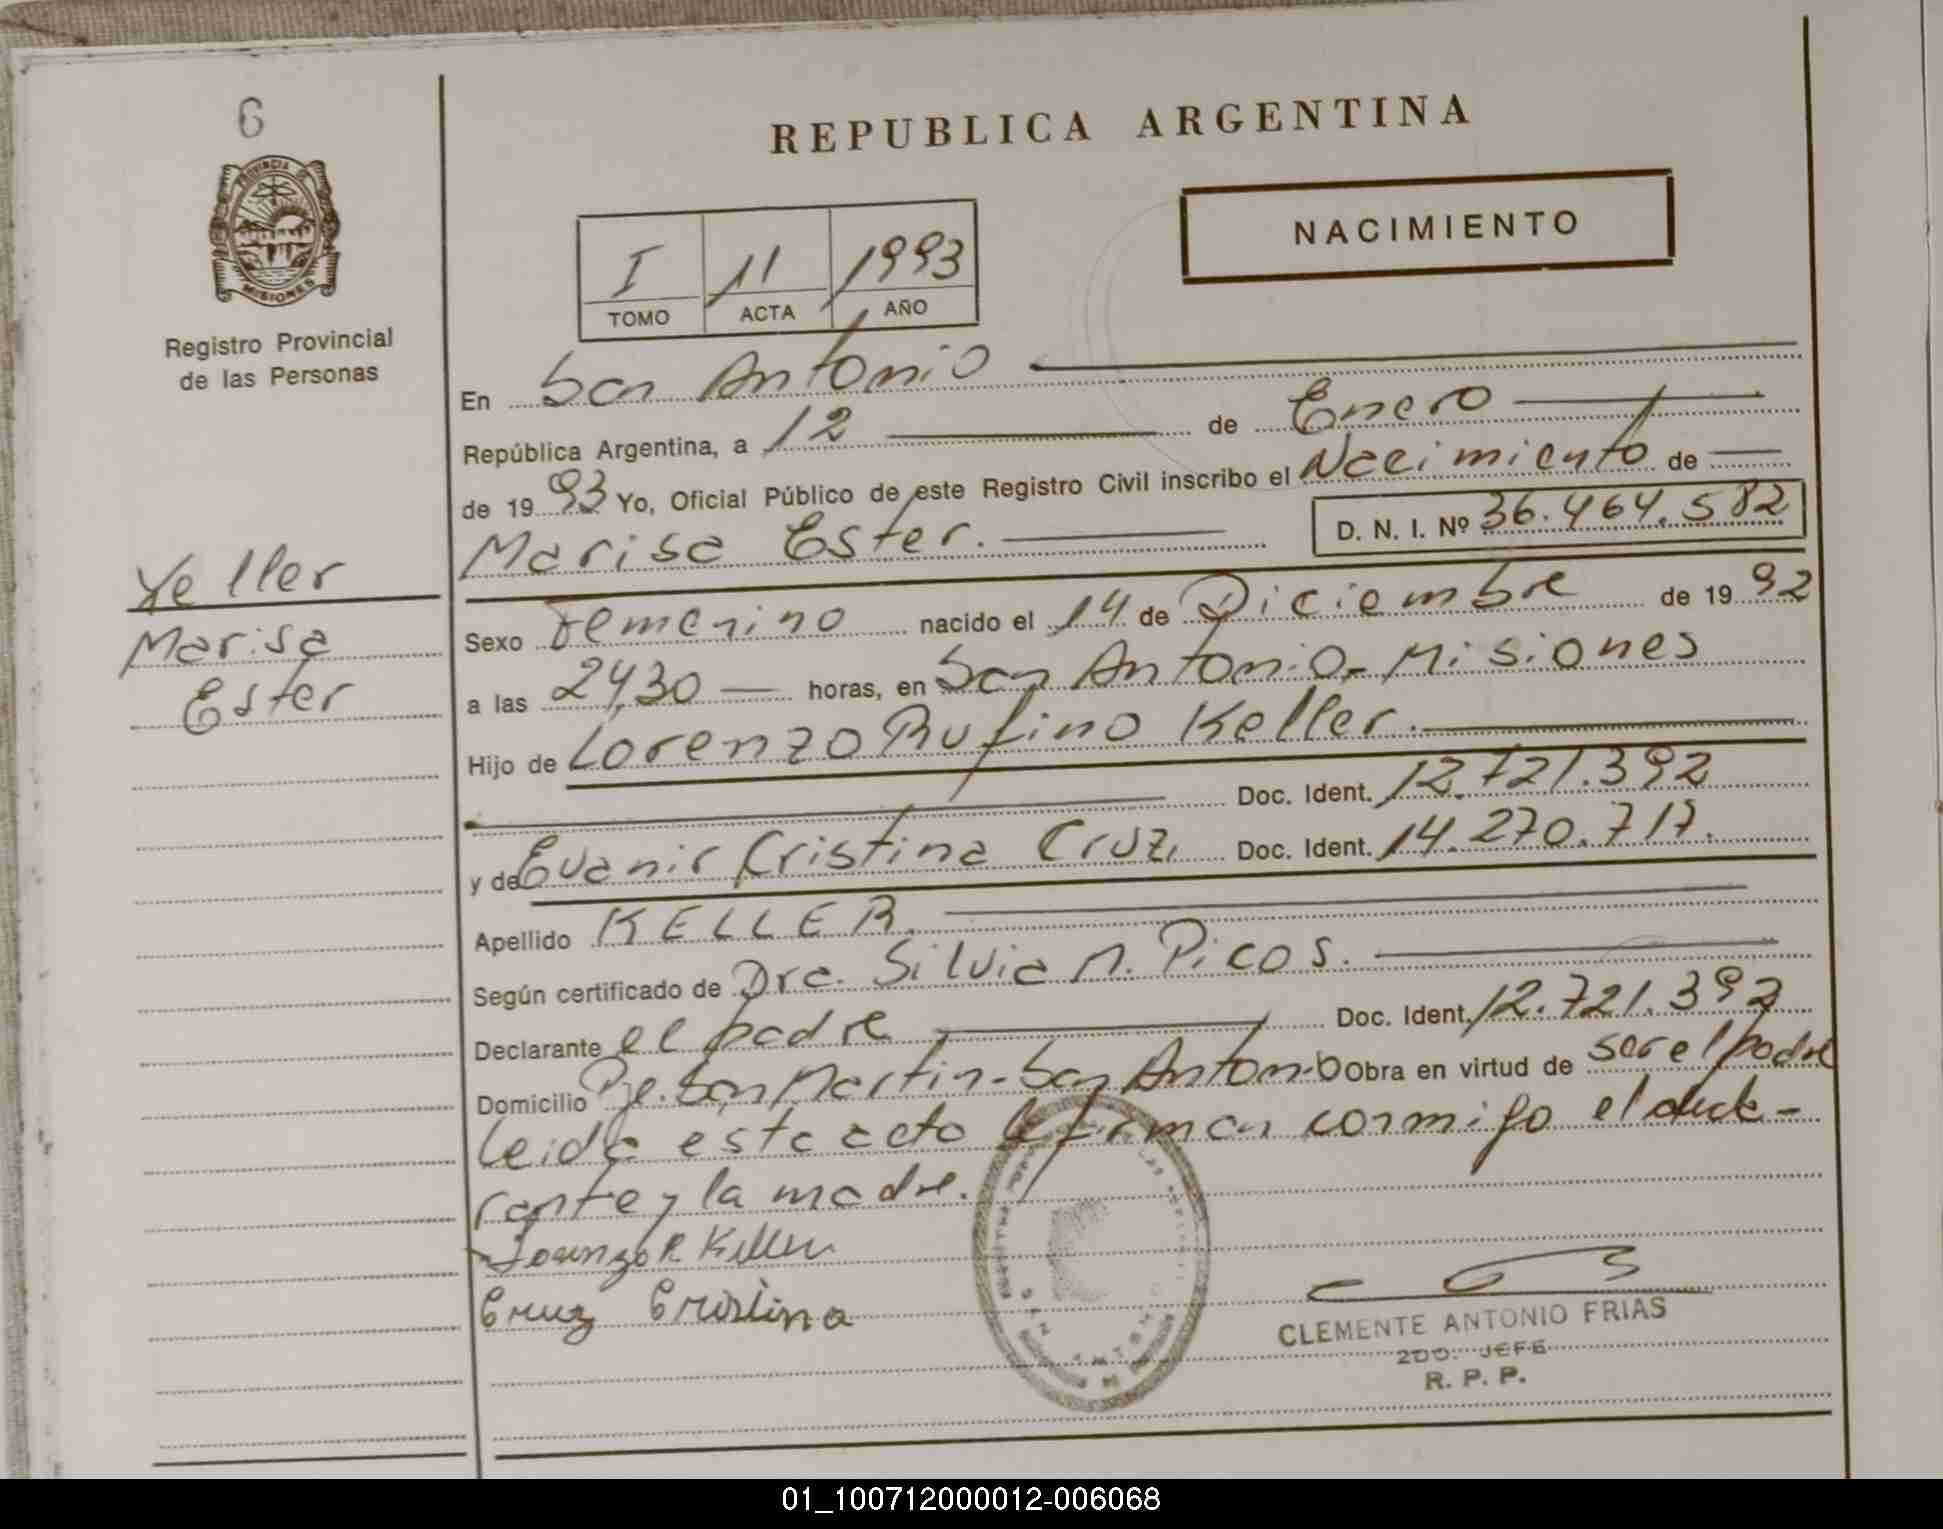 6
PROVINCIA DE
MISIONES
Registro Provincial
de las Personas
REPUBLICA ARGENTINA
NACIMIENTO
I 11 1993
TOMO ACTA AÑO
En San Antonio
República Argentina, a 12 de Enero
de 1993 Yo, Oficial Público de este Registro Civil inscribo el Nacimiento de
Marisa Ester. D. N. I. Nº 36.464.582
Keller
Marisa
Ester
Sexo Femenino nacido el 14 de Diciembre de 1992
a las 24,30 horas, en San Antonio - Misiones
Hijo de Lorenzo Rufino Keller.
Doc. Ident. 12.721.392
y de Evanir Cristina Cruz, Doc. Ident. 14.270.717.
Apellido KELLER.
Según certificado de Dra. Silvia N. Picos.
Declarante el padre Doc. Ident. 12.721.392
Domicilio Pje. San Martin - San Antonio Obra en virtud de ser el padre
leida esta acto la firman conmigo el decla-
rante y la madre.
Lorenzo R Keller
Cruz Cristina
CLEMENTE ANTONIO FRIAS
2DO. JEFE
R. P. P.
01_100712000012-006068